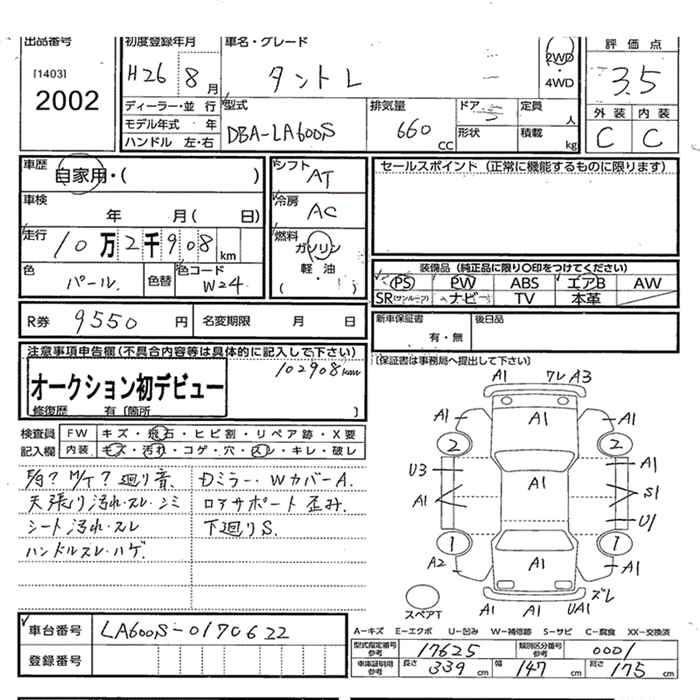 出品番号 初度登録年月 車名・グレード 2WD・4WD 評価点
[1403]
2002
H26 8月 タント L
3.5
外装 内装
C C
ディーラー・並行 型式 排気量 ドア 定員 人
モデル年式 年 DBA-LA600S 660 CC 形状 積載 kg
ハンドル 左・右
車歴 自家用・( )
シフト AT
セールスポイント (正常に機能するものに限ります)
車検 年 月( 日)
冷房 AC
走行 10万2千908km
燃料 ガソリン・軽・油 ( )
色 パール. 色替 色コード W24
装備品 (純正品に限り○印をつけてください)
PS PW ABS エアB AW
SR(サンルーフ) ナビー TV 本革
R券 9550円 名変期限 月 日
新車保証書 有・無 後日品
[保証書は事務局へ提出して下さい]
注意事項申告欄(不具合内容等は具体的に記入して下さい)
102908km
オークション初デビュー
修復歴 有 [箇所 ]
検査員 FW キズ・飛石・ヒビ割・リペア跡・X要
記入欄 内装 キズ・汚れ・コゲ・穴・スレ・キレ・破レ
廻り音. Dミラー・WカバーA.
天張り汚れ・スレ・シミ ロアサポート歪み.
シート汚れ・スレ 下廻りS.
ハンドルスレ・ハゲ.
A1 ワレ A3
A1 A1 A1
2 2
U3 A1
A1 A1 S1
U1
1 1
A2 A1 A1
スペアT
A1 A1 UA1 ズレ
車台番号 LA600S-0170622
登録番号
A-キズ E-エクボ U-凹み W-補修跡 S-サビ C-腐食 XX-交換済
型式指定番号 参考 17625 類別区分番号 参考 0001
車庫証明用 参考 長さ 339cm 幅 147cm 高さ 175cm